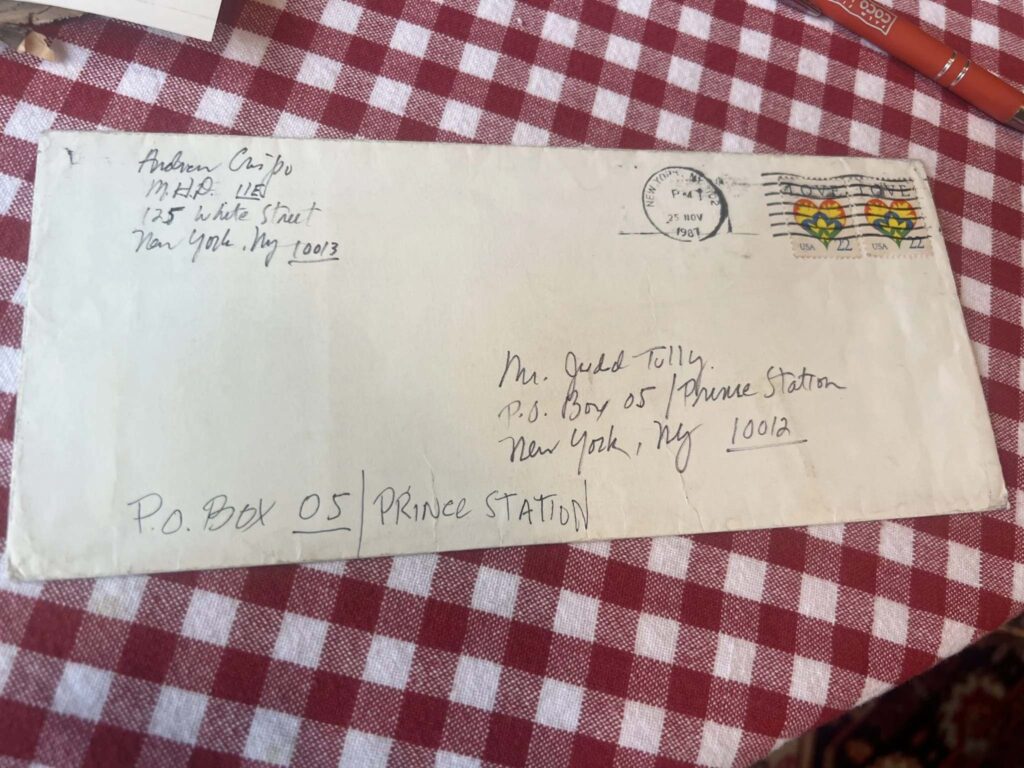 Andrew Crispo
M.H.D. 11E
125 White Street
New York, Ny 10013
NEW YORK, NY
PM
25 NOV
1987
LOVE LOVE
USA 22 USA 22
Mr. Judd Tully
P.O. Box 05 / Prince Station
New York, Ny 10012
P.O. BOX 05 | PRINCE STATION
COCO